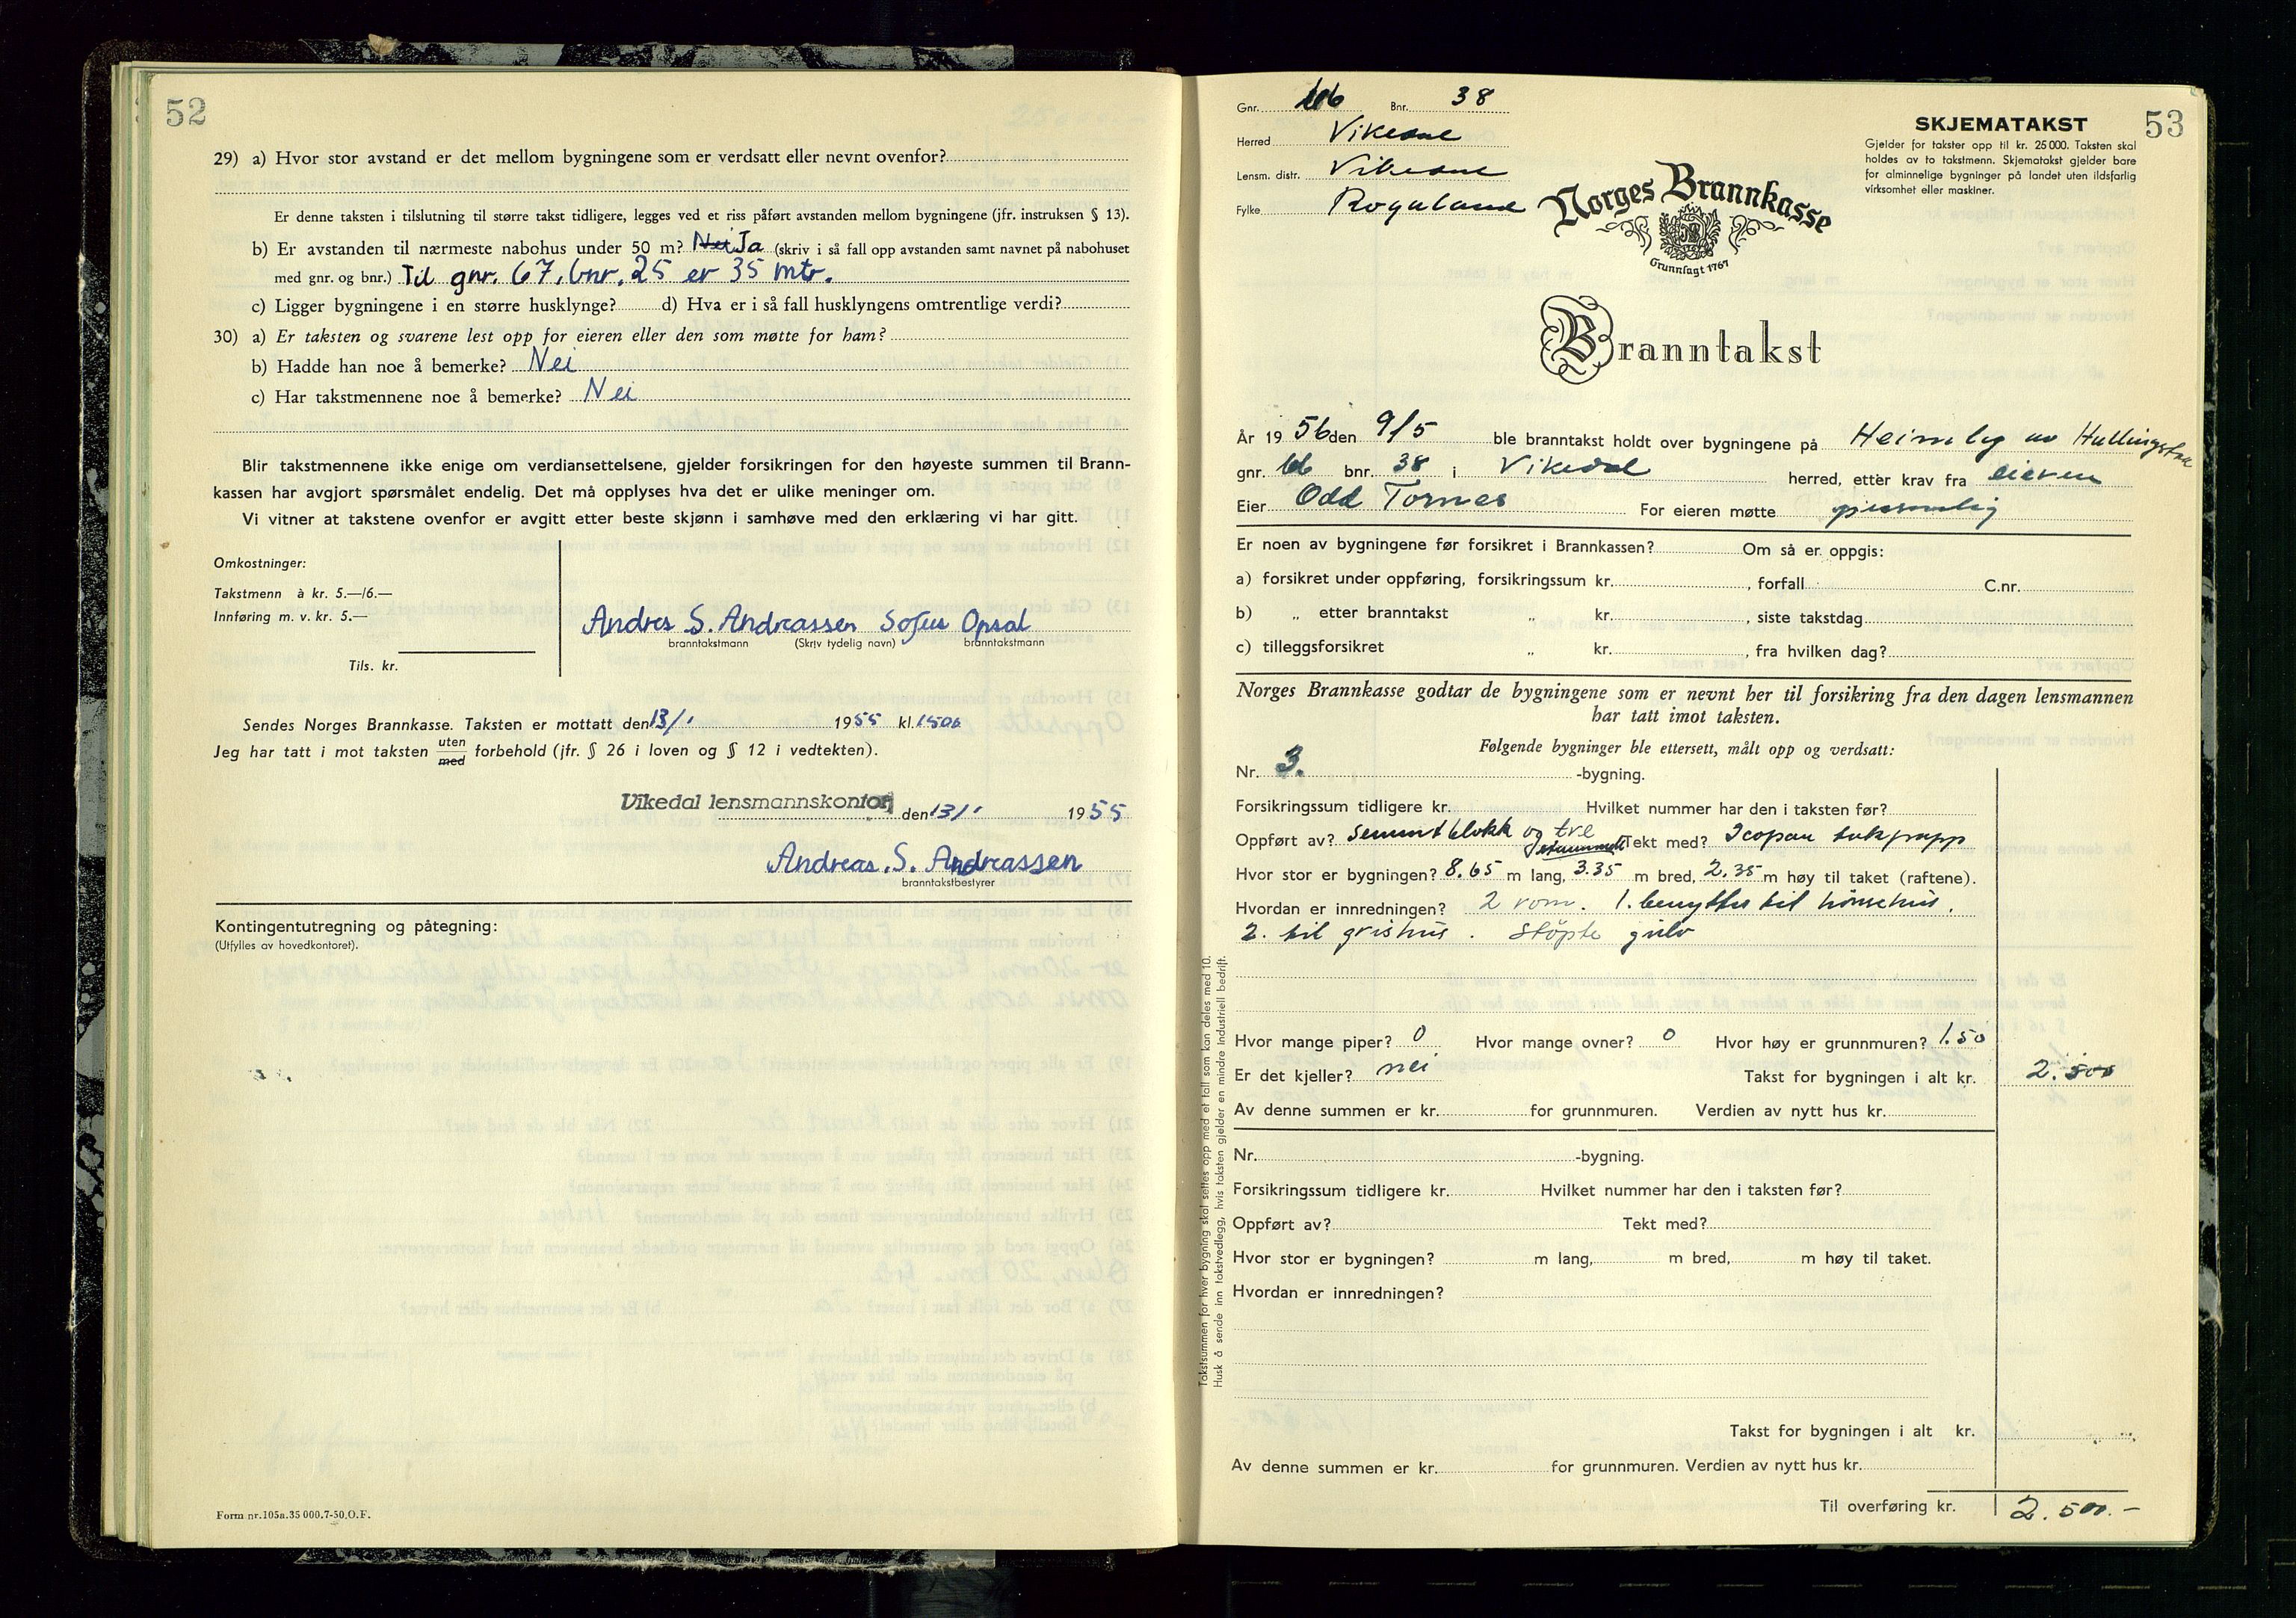 52
29) a) Hvor stor avstand er det mellom bygningene som er verdsatt eller nevnt ovenfor?
Er denne taksten i tilslutning til større takst tidligere, legges ved et riss påført avstanden mellom bygningene (jfr. instruksen § 13).
b) Er avstanden til nærmeste nabohus under 50 m? Nei Ja (skriv i så fall opp avstanden samt navnet på nabohuset
med gnr. og bnr.) Til gnr. 67, bnr. 25 er 35 mtr.
c) Ligger bygningene i en større husklynge? d) Hva er i så fall husklyngens omtrentlige verdi?
30) a) Er taksten og svarene lest opp for eieren eller den som møtte for ham?
b) Hadde han noe å bemerke? Nei
c) Har takstmennene noe å bemerke? Nei
Blir takstmennene ikke enige om verdiansettelsene, gjelder forsikringen for den høyeste summen til Brann-
kassen har avgjort spørsmålet endelig. Det må opplyses hva det er ulike meninger om.
Vi vitner at takstene ovenfor er avgitt etter beste skjønn i samhøve med den erklæring vi har gitt.
Omkostninger:
Takstmenn à kr. 5.—/6.—
Innføring m. v. kr. 5.—
Tils. kr.
Andres S. Andreassen Sofus Opsal
branntakstmann (Skriv tydelig navn) branntakstmann
Sendes Norges Brannkasse. Taksten er mottatt den 13/1 1955 kl. 1500
Jeg har tatt i mot taksten uten med forbehold (jfr. § 26 i loven og § 12 i vedtekten).
Vikedal lensmannskontor, den 13/1 1955
Andreas. S. Andreassen
branntakstbestyrer
Kontingentutregning og påtegning:
(Utfylles av hovedkontoret).
Form nr. 105a. 35 000. 7-50. O.F.
53
Gnr. 66 Bnr. 38
Herred Vikedal
Lensm. distr. Vikedal
Fylke Rogaland
SKJEMATAKST
Gjelder for takster opp til kr. 25 000. Taksten skal
holdes av to takstmenn. Skjematakst gjelder bare
for alminnelige bygninger på landet uten ildsfarlig
virksomhet eller maskiner.
Norges Brannkasse
Grunnlagt 1767
Branntakst
År 19 56 den 9/5 ble branntakst holdt over bygningene på Heimly av
gnr. 66 bnr. 38 i Vikedal herred, etter krav fra eieren
Eier Odd Tornes For eieren møtte
Er noen av bygningene før forsikret i Brannkassen? Om så er oppgis:
a) forsikret under oppføring, forsikringssum kr. , forfall C.nr.
b) „ etter branntakst „ kr. , siste takstdag
c) tilleggsforsikret „ kr. , fra hvilken dag?
Norges Brannkasse godtar de bygningene som er nevnt her til forsikring fra den dagen lensmannen
har tatt imot taksten.
Følgende bygninger ble ettersett, målt opp og verdsatt:
Nr. 3. -bygning.
Forsikringssum tidligere kr. Hvilket nummer har den i taksten før?
Oppført av? sementblokk og tre Tekt med? Icopan takpapp
Hvor stor er bygningen? 8.65 m lang, 3.35 m bred, 2.35 m høy til taket (raftene).
Hvordan er innredningen? 2 rom. 1. benyttes til hønsehus,
2. til grishus. Støpte gulv
Hvor mange piper? 0 Hvor mange ovner? 0 Hvor høy er grunnmuren? 1.50
Er det kjeller? nei Takst for bygningen i alt kr. 2.500
Av denne summen er kr. for grunnmuren. Verdien av nytt hus kr.
Nr. -bygning.
Forsikringssum tidligere kr. Hvilket nummer har den i taksten før?
Oppført av? Tekt med?
Hvor stor er bygningen? m lang, m bred, m høy til taket.
Hvordan er innredningen?
Takst for bygningen i alt kr.
Av denne summen er kr. for grunnmuren. Verdien av nytt hus kr.
Til overføring kr. 2.500.-
Takstsummen for hver bygning skal settes opp med et tall som kan deles med 10.
Husk å sende inn takstvedlegg, hvis taksten gjelder en mindre industriell bedrift.